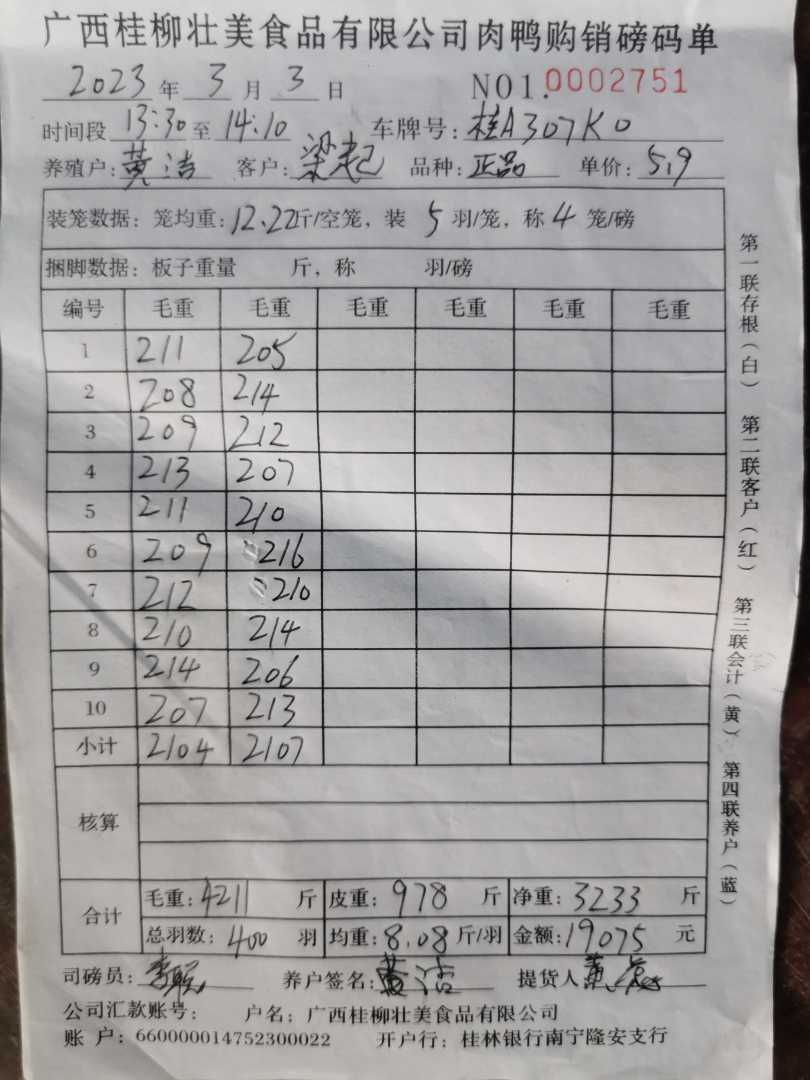 广西桂柳壮美食品有限公司肉鸭购销磅码单
2023 年 3 月 3 日 NO1.0002751
时间段 13:30 至 14:10 车牌号: 桂A307K0
养殖户: 黄洁 客户: 梁起 品种: 正品 单价: 5.9
装笼数据: 笼均重: 12.22斤/空笼, 装 5 羽/笼, 称 4 笼/磅
捆脚数据: 板子重量 斤, 称 羽/磅
编号 毛重 毛重 毛重 毛重 毛重 毛重
1 211 205
2 208 214
3 209 212
4 213 207
5 211 210
6 209 216
7 212 210
8 210 214
9 214 206
10 207 213
小计 2104 2107
核算
合计 毛重: 4211 斤 皮重: 978 斤 净重: 3233 斤
总羽数: 400 羽 均重: 8.08 斤/羽 金额: 19075 元
司磅员: 养户签名: 黄洁 提货人
公司汇款账号: 户名: 广西桂柳壮美食品有限公司
账户: 660000014752300022 开户行: 桂林银行南宁隆安支行
第一联存根(白) 第二联客户(红) 第三联会计(黄) 第四联养户(蓝)